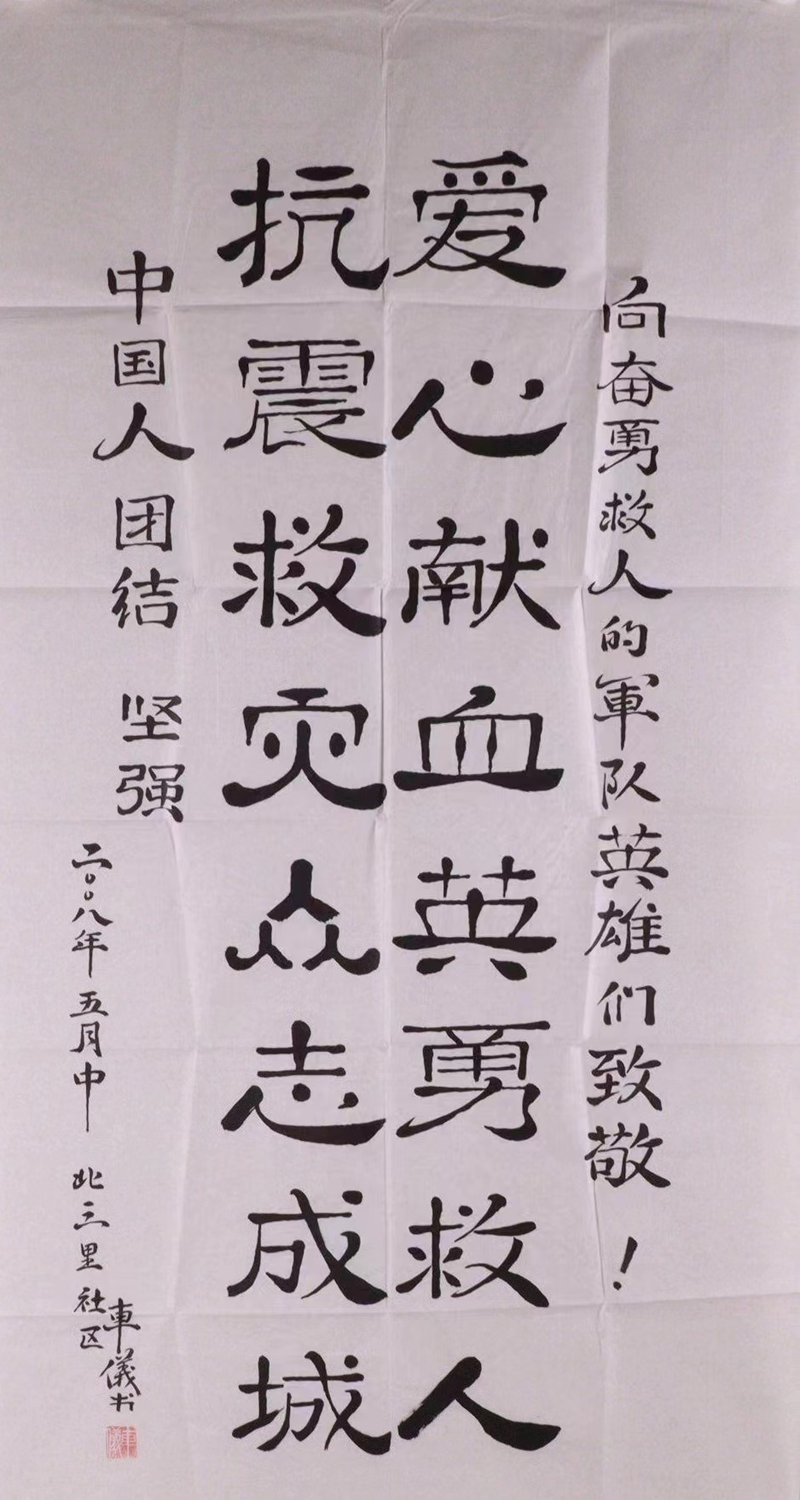 向奋勇救人的軍队英雄们致敬!
爱心献血英勇救人
抗震救灾众志成城
中国人团结 坚强
二〇〇八年 五月中 北三里社区
車儀书